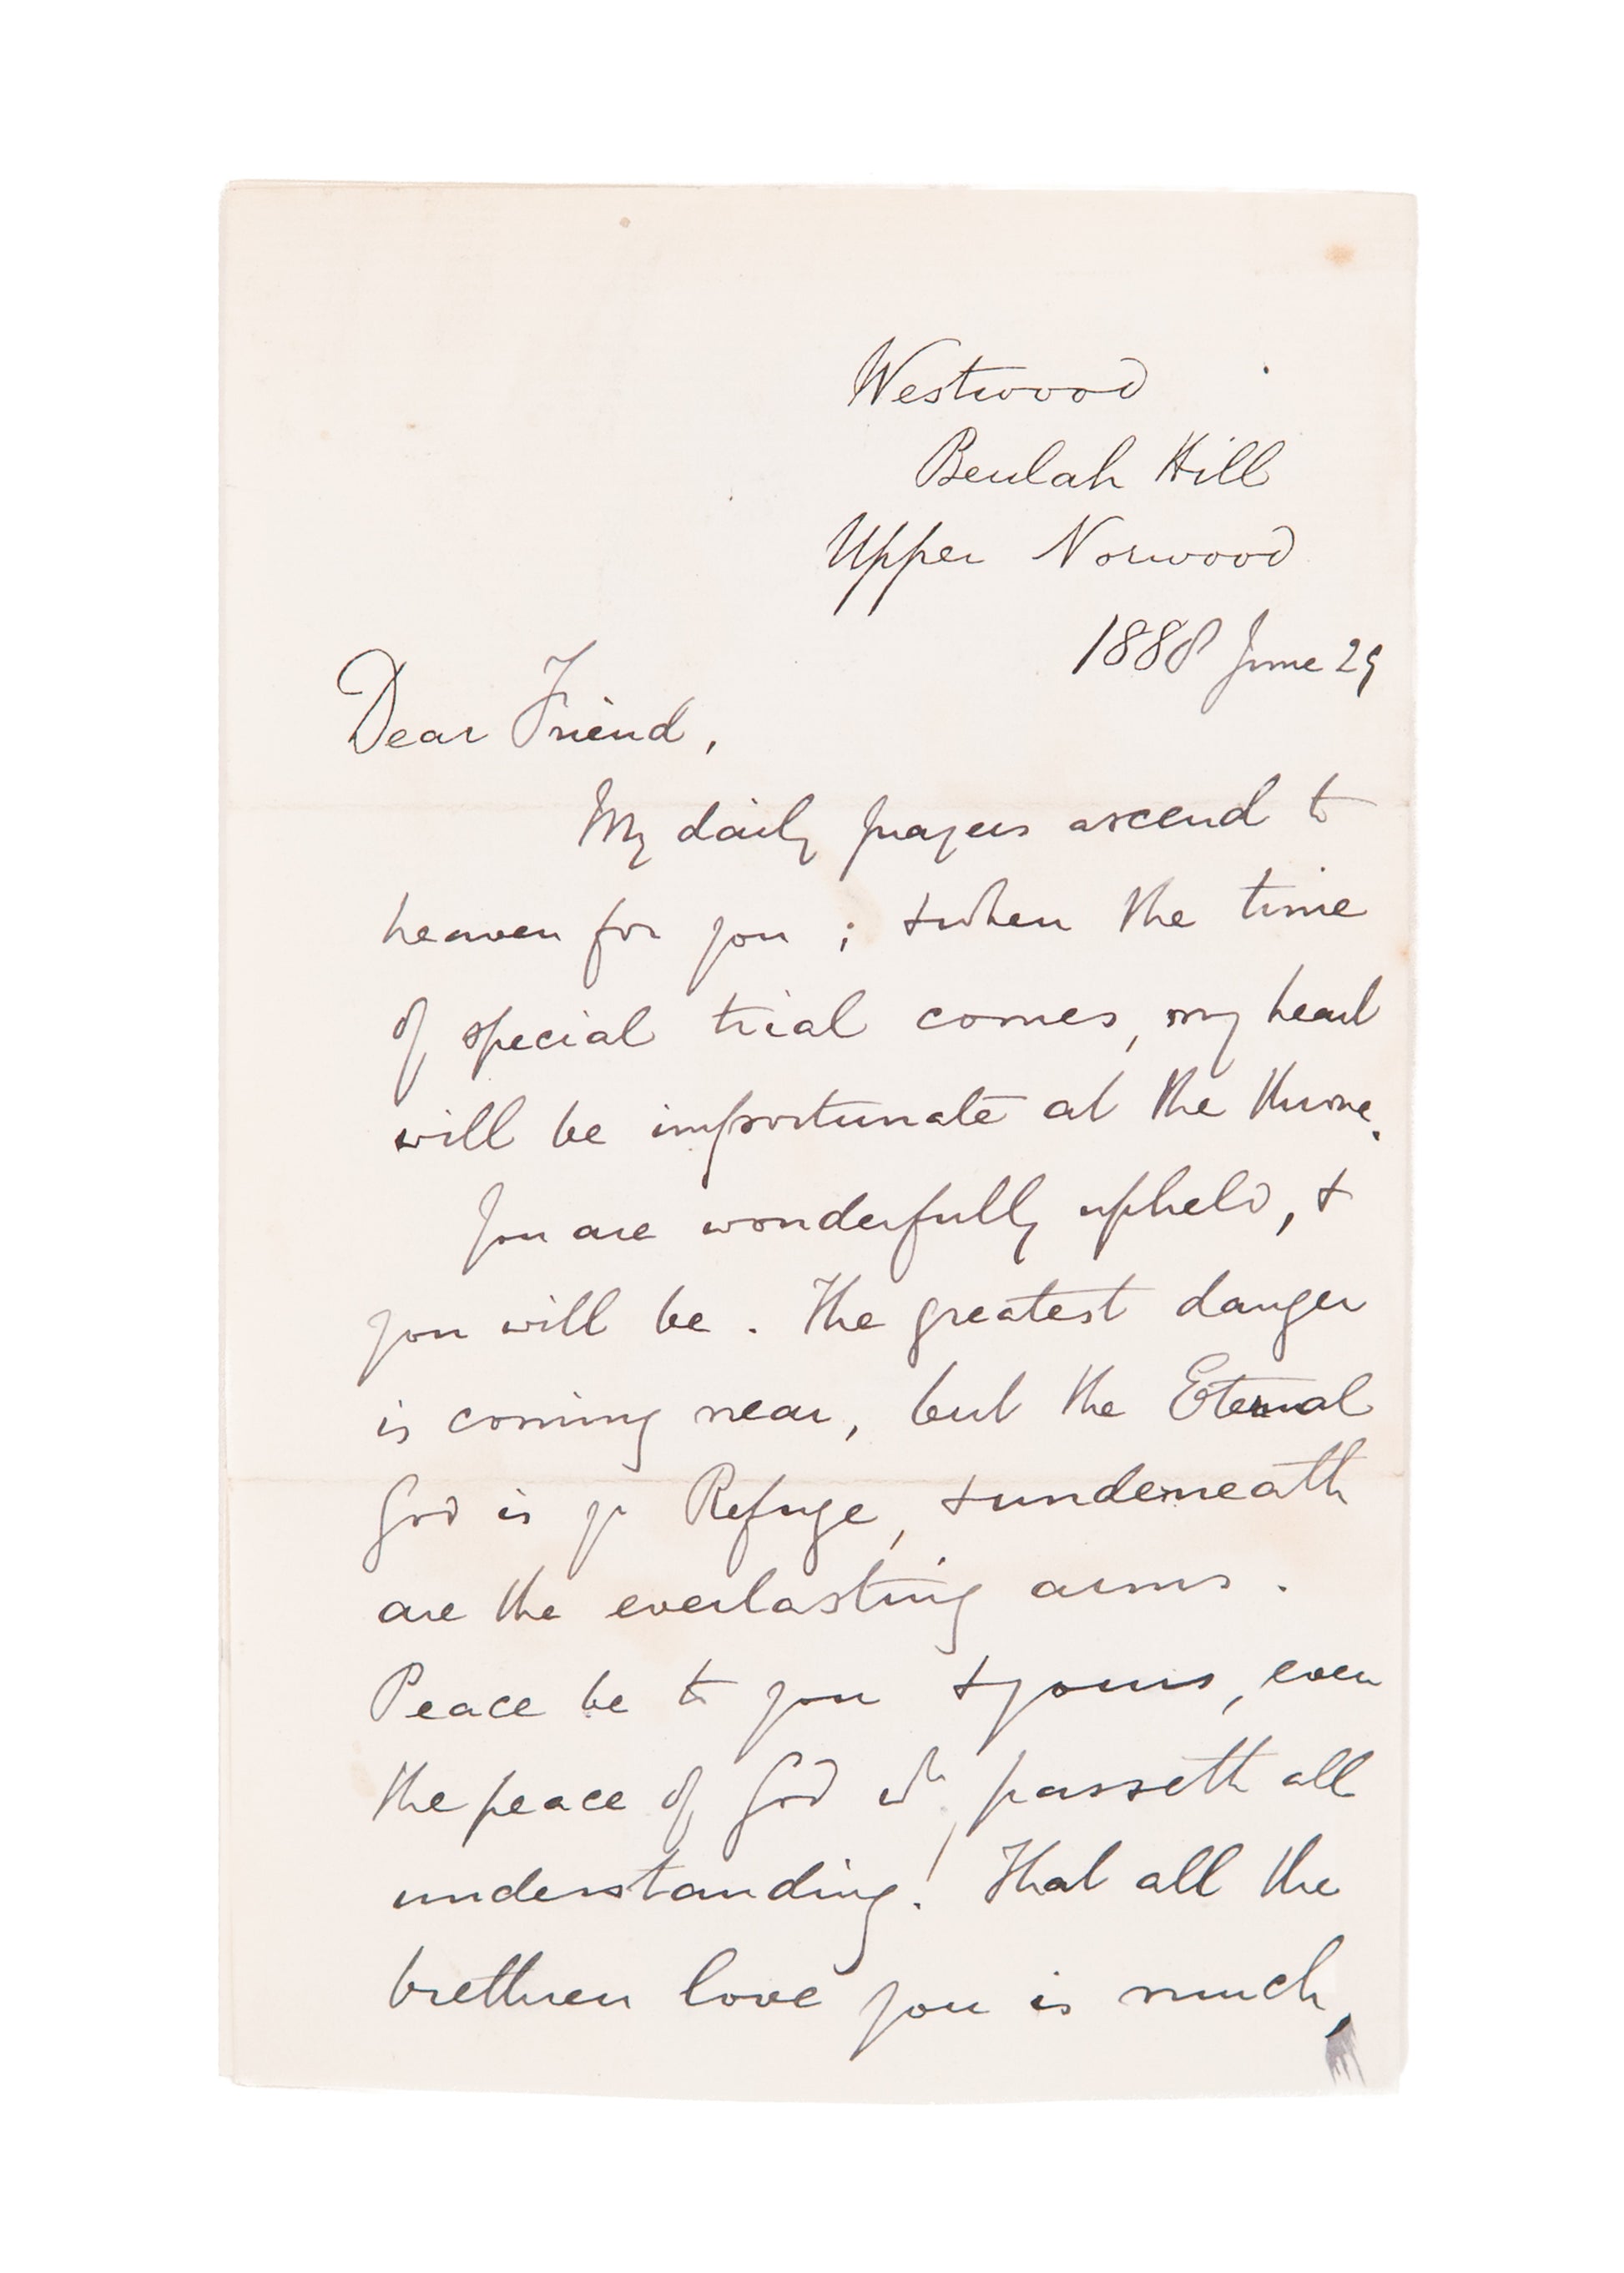 Westwood
Beulah Hill
Upper Norwood
1888 June 29
Dear Friend,
My daily prayers ascend to
heaven for you ; & when the time
of special trial comes, my heart
will be importunate at the throne.
You are wonderfully upheld, &
you will be. The greatest danger
is coming near, but the Eternal
God is yr Refuge, & underneath
are the everlasting arms.
Peace be to you & yours, even
the peace of God wh. passeth all
understanding! That all the
brethren love you is much,